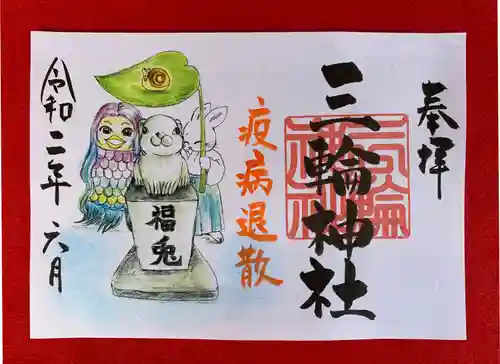 奉拝
三輪神社
三輪神社
疫病退散
福兎
令和二年 六月